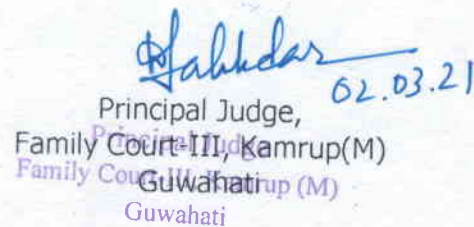 02.03.21
Principal Judge,
Family Court-III, Kamrup(M)
Guwahati
Principal Judge
Family Court-III, Kamrup (M)
Guwahati